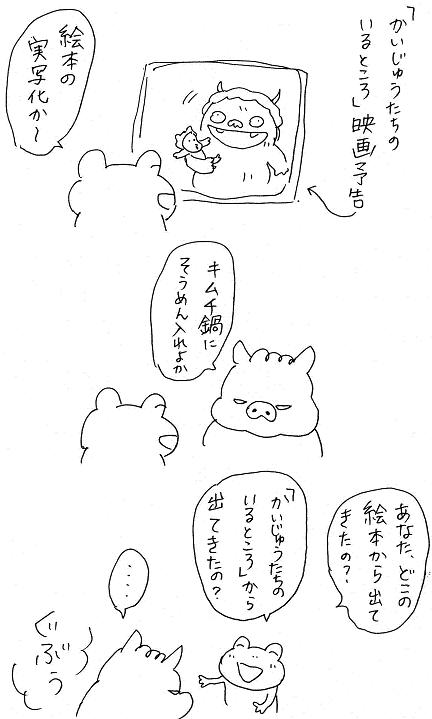 「かいじゅうたちの
いるところ」映画予告
絵本の
実写化か〜
キムチ鍋に
そうめん入れよか
あなた、どこの
絵本から出て
きたの?
「かいじゅうたちの
いるところ」から
出てきたの?
....
ぐぶう